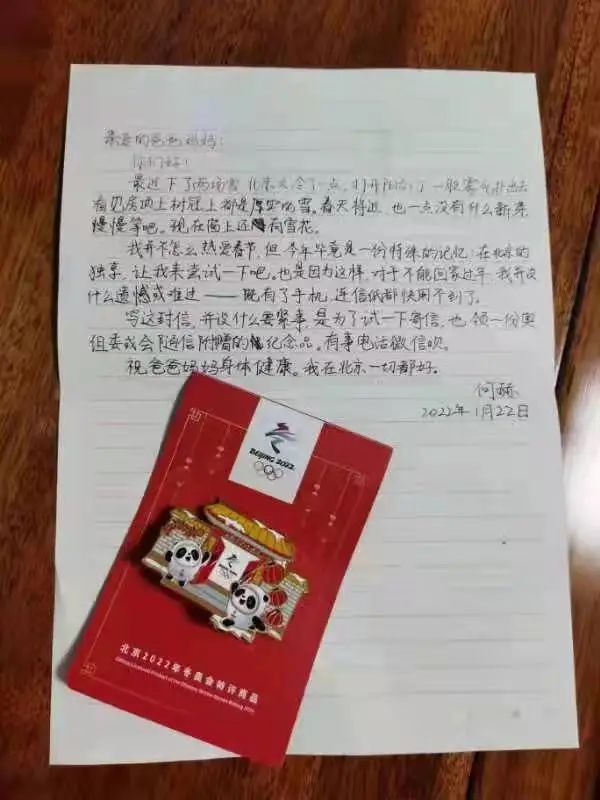 亲爱的爸爸妈妈：
你们好！
最近下了两场雪，北京又冷了一点，打开阳台门一股寒气扑出去
看见房顶上树冠上都是厚实的雪。春天将近，也一点没有什么新来
慢慢等吧。现在窗上还有雪花。
我并不怎么热爱春节，但今年毕竟是一份特殊的记忆：在北京的
独享，让我来尝试一下吧。也是因为这样，对于不能回家过年，我并没
什么遗憾或难过——既有了手机，连信纸都快用不到了。
写这封信，并没什么要紧事，是为了试一下寄信，也领一份奥
组委或会随信附赠的纪念品。有事电话微信呗。
祝爸爸妈妈身体健康。我在北京一切都好。
何
2022年1月22日
BEIJING 2022
北京2022年冬奥会特许商品
Official Licensed Product of the Olympic Winter Games Beijing 2022